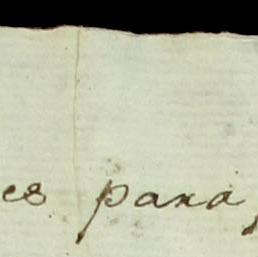 es para